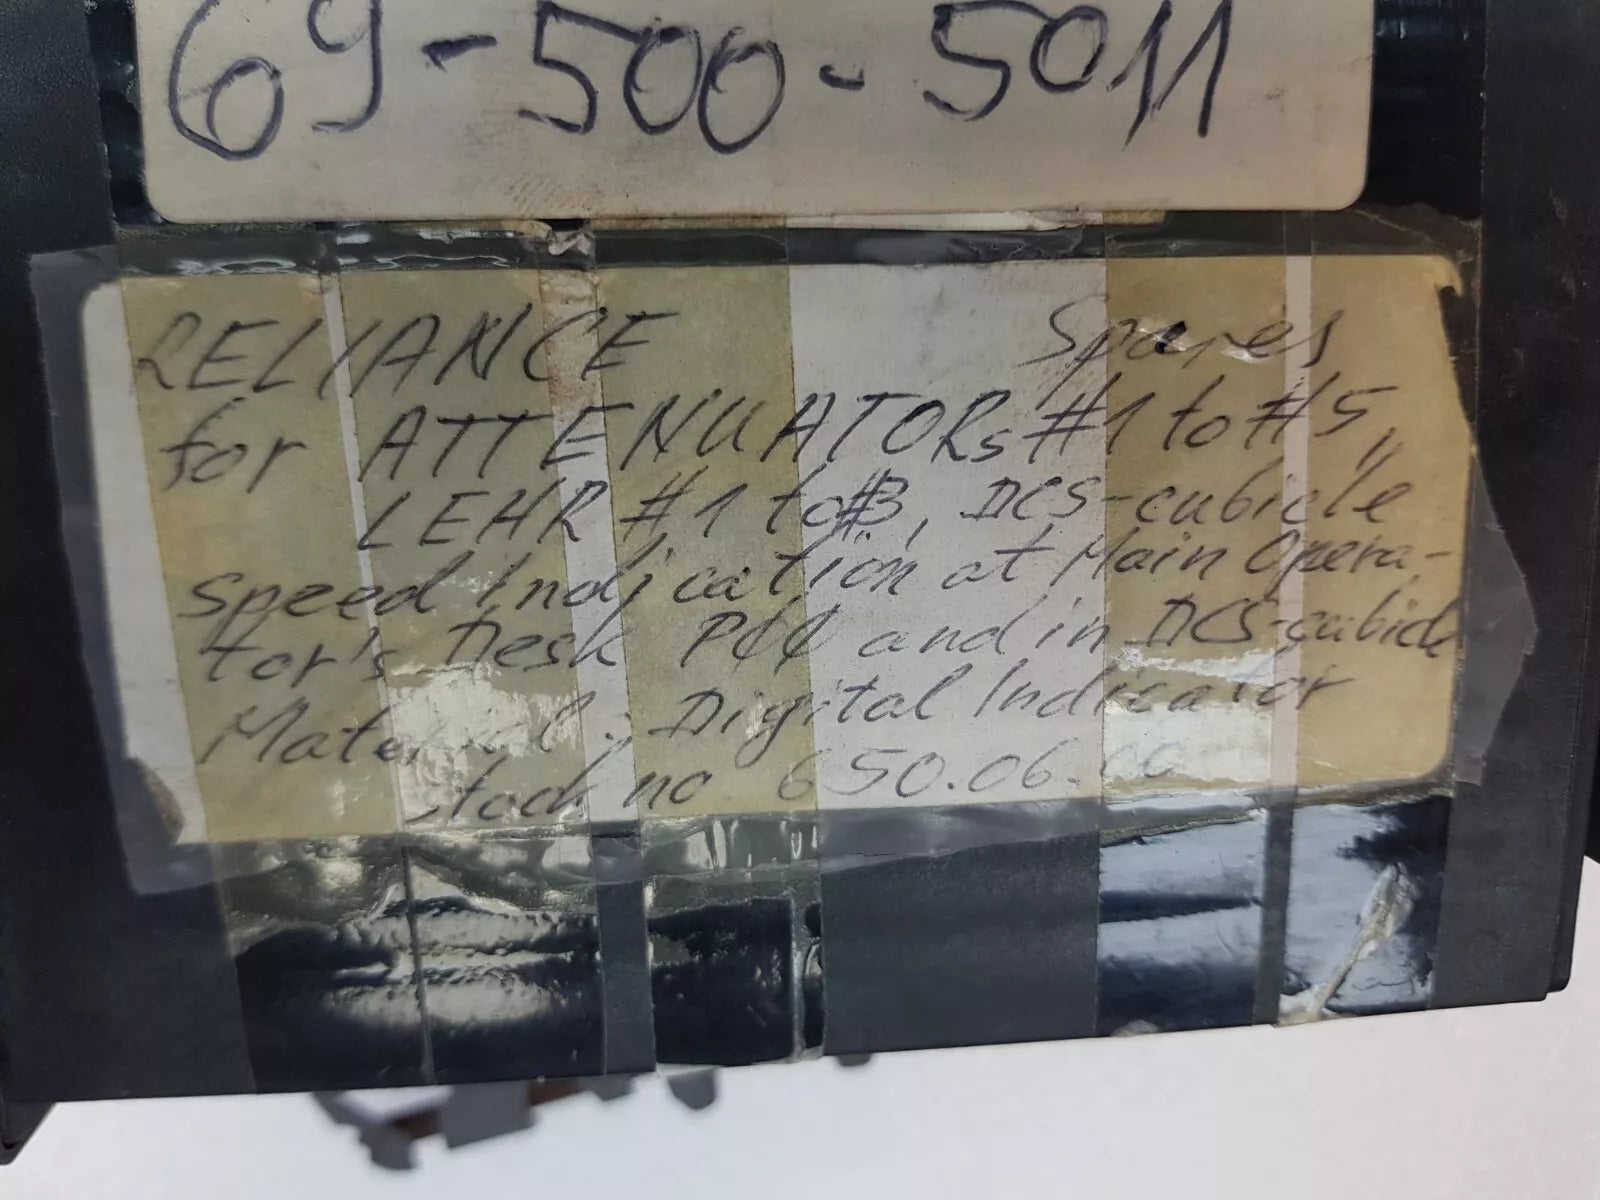 69-500-5011
RELIANCE Spares
for ATTENUATORs #1 to #5,
LEHR #1 to #3, DCS-cubicle
Speed Indication at Main Opera-
tor's Desk and in DCS-cubicle
Material: Digital Indicator
stock no 650.06.00